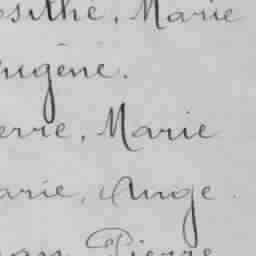 osithe, Marie
ugène.
erre, Marie
arie, Ange.
Pierre